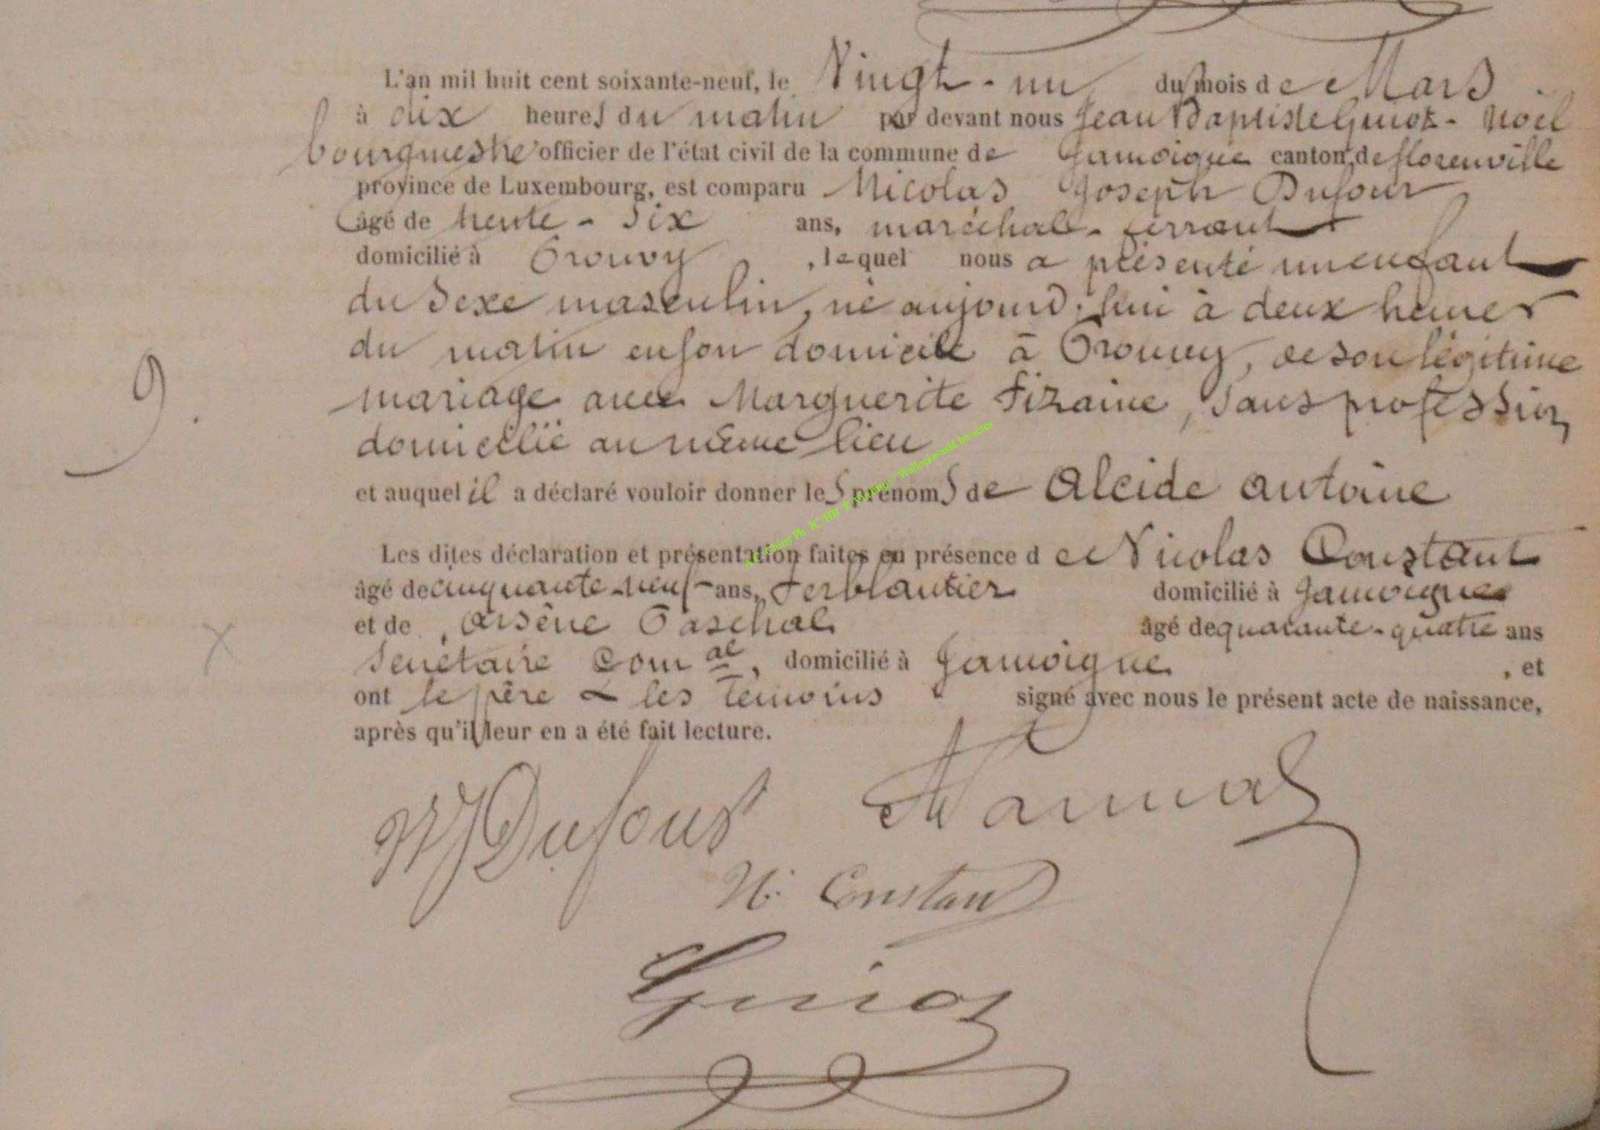 L'an mil huit cent soixante-neuf, le Vingt-un du mois de Mars
à dix heures du matin par devant nous Jean Baptiste Guiot-Noël
bourgmestre officier de l'état civil de la commune de Jamoigne canton de florenville
province de Luxembourg, est comparu Nicolas Joseph Dufour
âgé de trente-six ans, maréchal-ferrant
domicilié à Prouvy, lequel nous a présenté un enfant
du sexe masculin, né aujourd'hui à deux heures
du matin en son domicile à Prouvy, de son légitime
9. mariage avec Marguerite Fizaine, sans profession,
domicilié au même lieu
et auquel il a déclaré vouloir donner les prénoms de Alcide antoine
Les dites déclaration et présentation faites en présence de Nicolas Constant
âgé de cinquante-neuf ans, ferblantier domicilié à Jamoigne
et de, Arsène Paschal âgé de quarante-quatre ans
X Secrétaire Com al, domicilié à Jamoigne, et
ont le père & les témoins signé avec nous le présent acte de naissance,
après qu'il leur en a été fait lecture.
NJ Dufour
N. Constant
Guiot